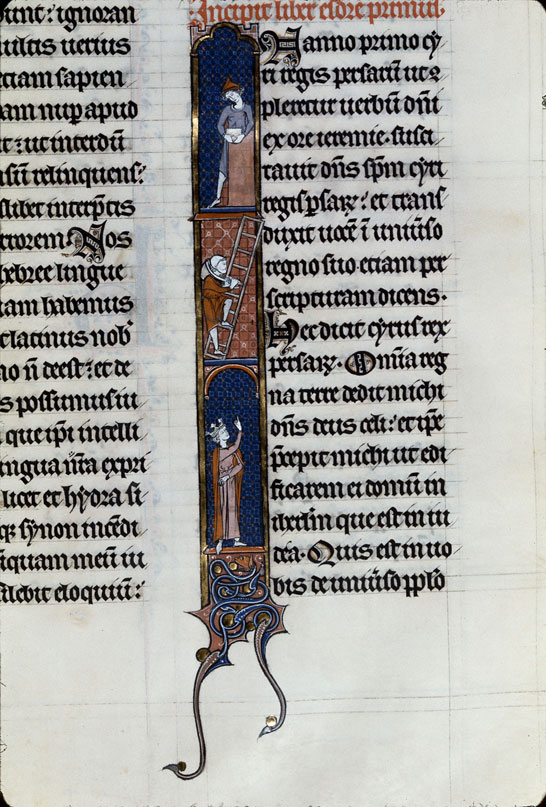 dunt: ignoran
multis uerius
etiam sapien
nam nup apud
t: ut interdū
nsū relinquens:
slibet interp̄tis
ctorem. Nos
hebree lingue
iam habemus
latinus nob̄
no n̄ deest: et de
s possumus iu
que ip̄i intelli
ingua n̄ra expri
licet et hydra si
qȝ synon incēdi
iquam metū iu
silebit eloquiū:
Incipit liber esdre primus.
In anno primo cy
ri regis persarū ut 9
pleretur uerbū dn̄i
ex ore ieremie. susci
tauit dn̄s sp̄m cyri
regis p̱saꝝ: et trans
duxit uocē ī uniūso
regno suo etiam per
scripturam dicens.
Hec dicit cyrus rex
persaꝝ. Om̄ia reg
na terre dedit michi
dn̄s deus celi: et ip̄e
p̄cepit michi ut edi
ficarem ei domū in
ihrl̄m que est in iu
dea. Quis est in uo
bis de uniūso pp̄lo